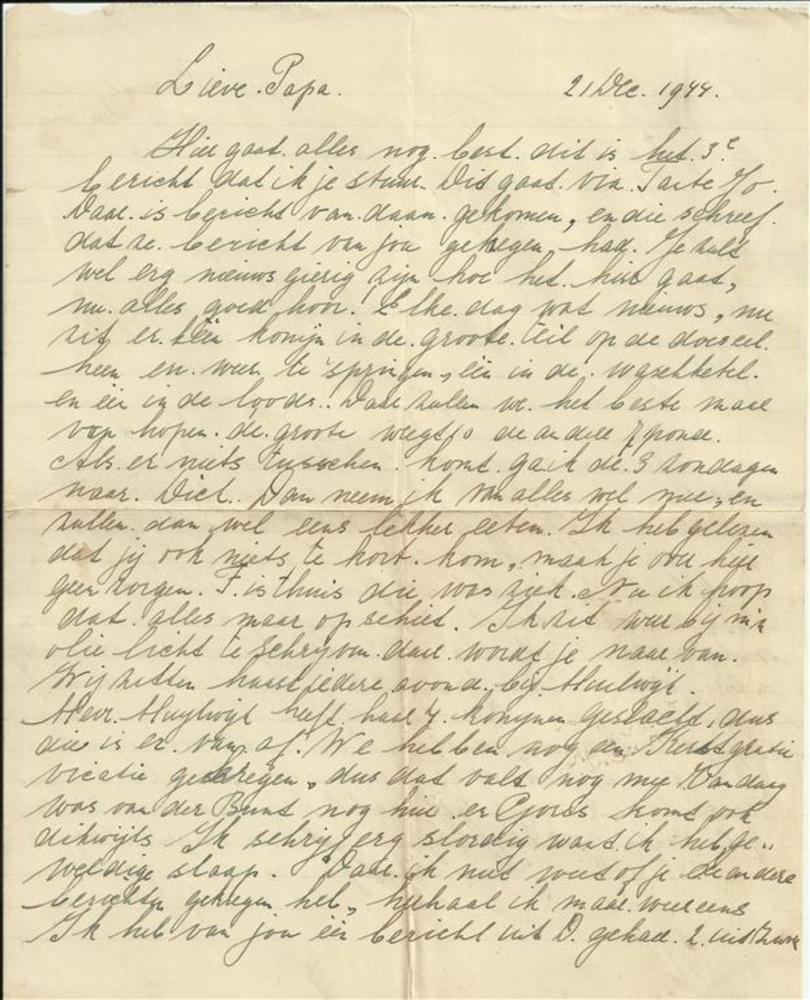 Lieve Papa. 21 Dec. 1944.
Hier gaat alles nog best. dit is het 3e
bericht dat ik je stuur. Dit gaat via Tante Jo.
Daar is bericht van daan gekomen, en die schreef
dat ze bericht van jou gekregen had. Je zult
wel erg nieuwsgierig zijn hoe het hier gaat,
nu alles goed hoor! Elke dag wat nieuws, nu
zit er één konijn in de groote teil op de
heen en weer te springen, één in de waschketel
en één in de loods. Daar zullen we het beste maar
van hopen. de groote weegt 10 de andere 7 pond.
Als er niets tusschen komt ga ik de 3 zondagen
naar Diet. Dan neem ik van alles wel mee, en
zullen dan wel eens lekker eeten. Ik heb gelezen
dat jij ook niets te kort kom, maak je over hier
geen zorgen. F. is thuis die was ziek. Nu ik hoop
dat alles maar opschiet. Ik zit weer bij m'n
olie licht te schrijven daar wordt je naar van.
Wij zitten haast iedere avond bij
Mevr. heeft haar 4 konijnen geslacht, dus
die is er van af. We hebben nog een Kerstgratie
vicatie gekregen, dus dat valt nog mee. Vandaag
was van der Bunt nog hier en komt ook
dikwijls Ik schrijf erg slordig want ik heb ge..
weldige slaap. Daar ik niet weet of je de andere
berichten gekregen heb, herhaal ik maar weereens
Ik heb van jou één bericht uit D. gehad. 2 uit